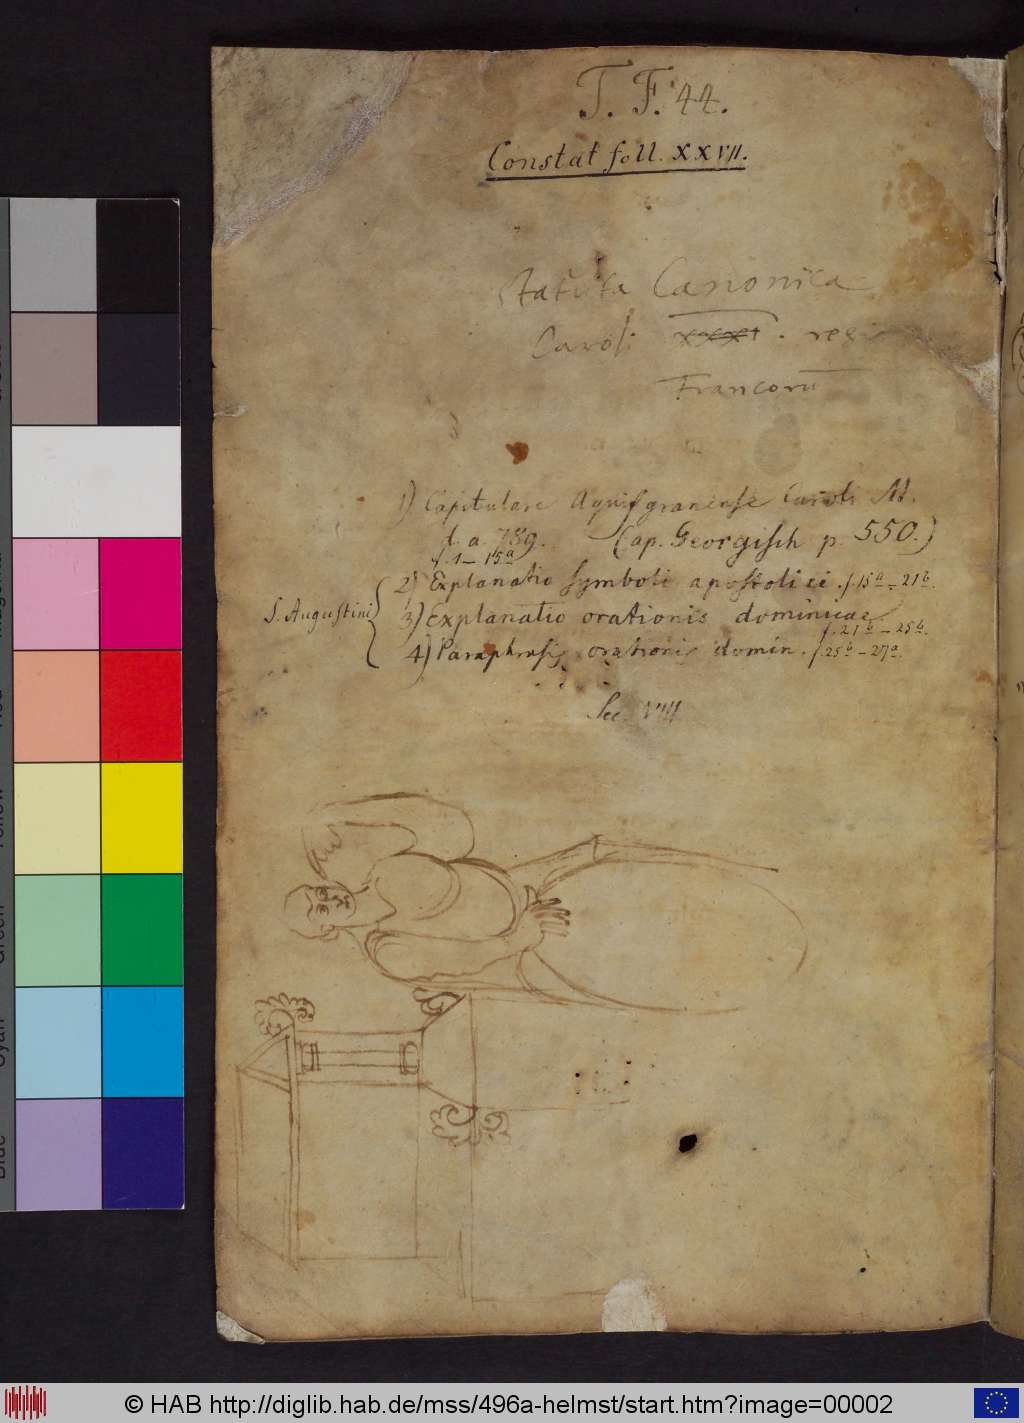 T. F. 44.
Constat foll. XXVII.
Statuta Canonica
Caroli xxxi. regis
Francorū
1) Capitulare Aquisgranense Caroli M.
d. a. 789. (Cap. Georgisch p. 550.)
f. 1–15ᵃ
2) Explanatio symboli apostolici. f. 15ᵃ–21ᵇ.
S. Augustini
3) Explanatio orationis dominicae
f. 21ᵇ–25ᵇ.
4) Paraphrasis orationis domin. f. 25ᵇ–27ᵃ.
Sec. VIII
© HAB http://diglib.hab.de/mss/496a-helmst/start.htm?image=00002